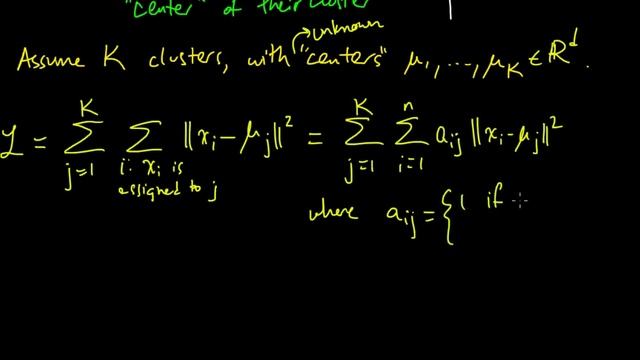 "center" of their cluster
unknown
Assume K clusters, with "centers" μ₁, ..., μ_K ∈ ℝᵈ.
L = ∑_{j=1}^{K} ∑_{i: x_i is assigned to j} ‖x_i − μ_j‖² = ∑_{j=1}^{K} ∑_{i=1}^{n} a_{ij} ‖x_i − μ_j‖²
where a_{ij} = { 1 if